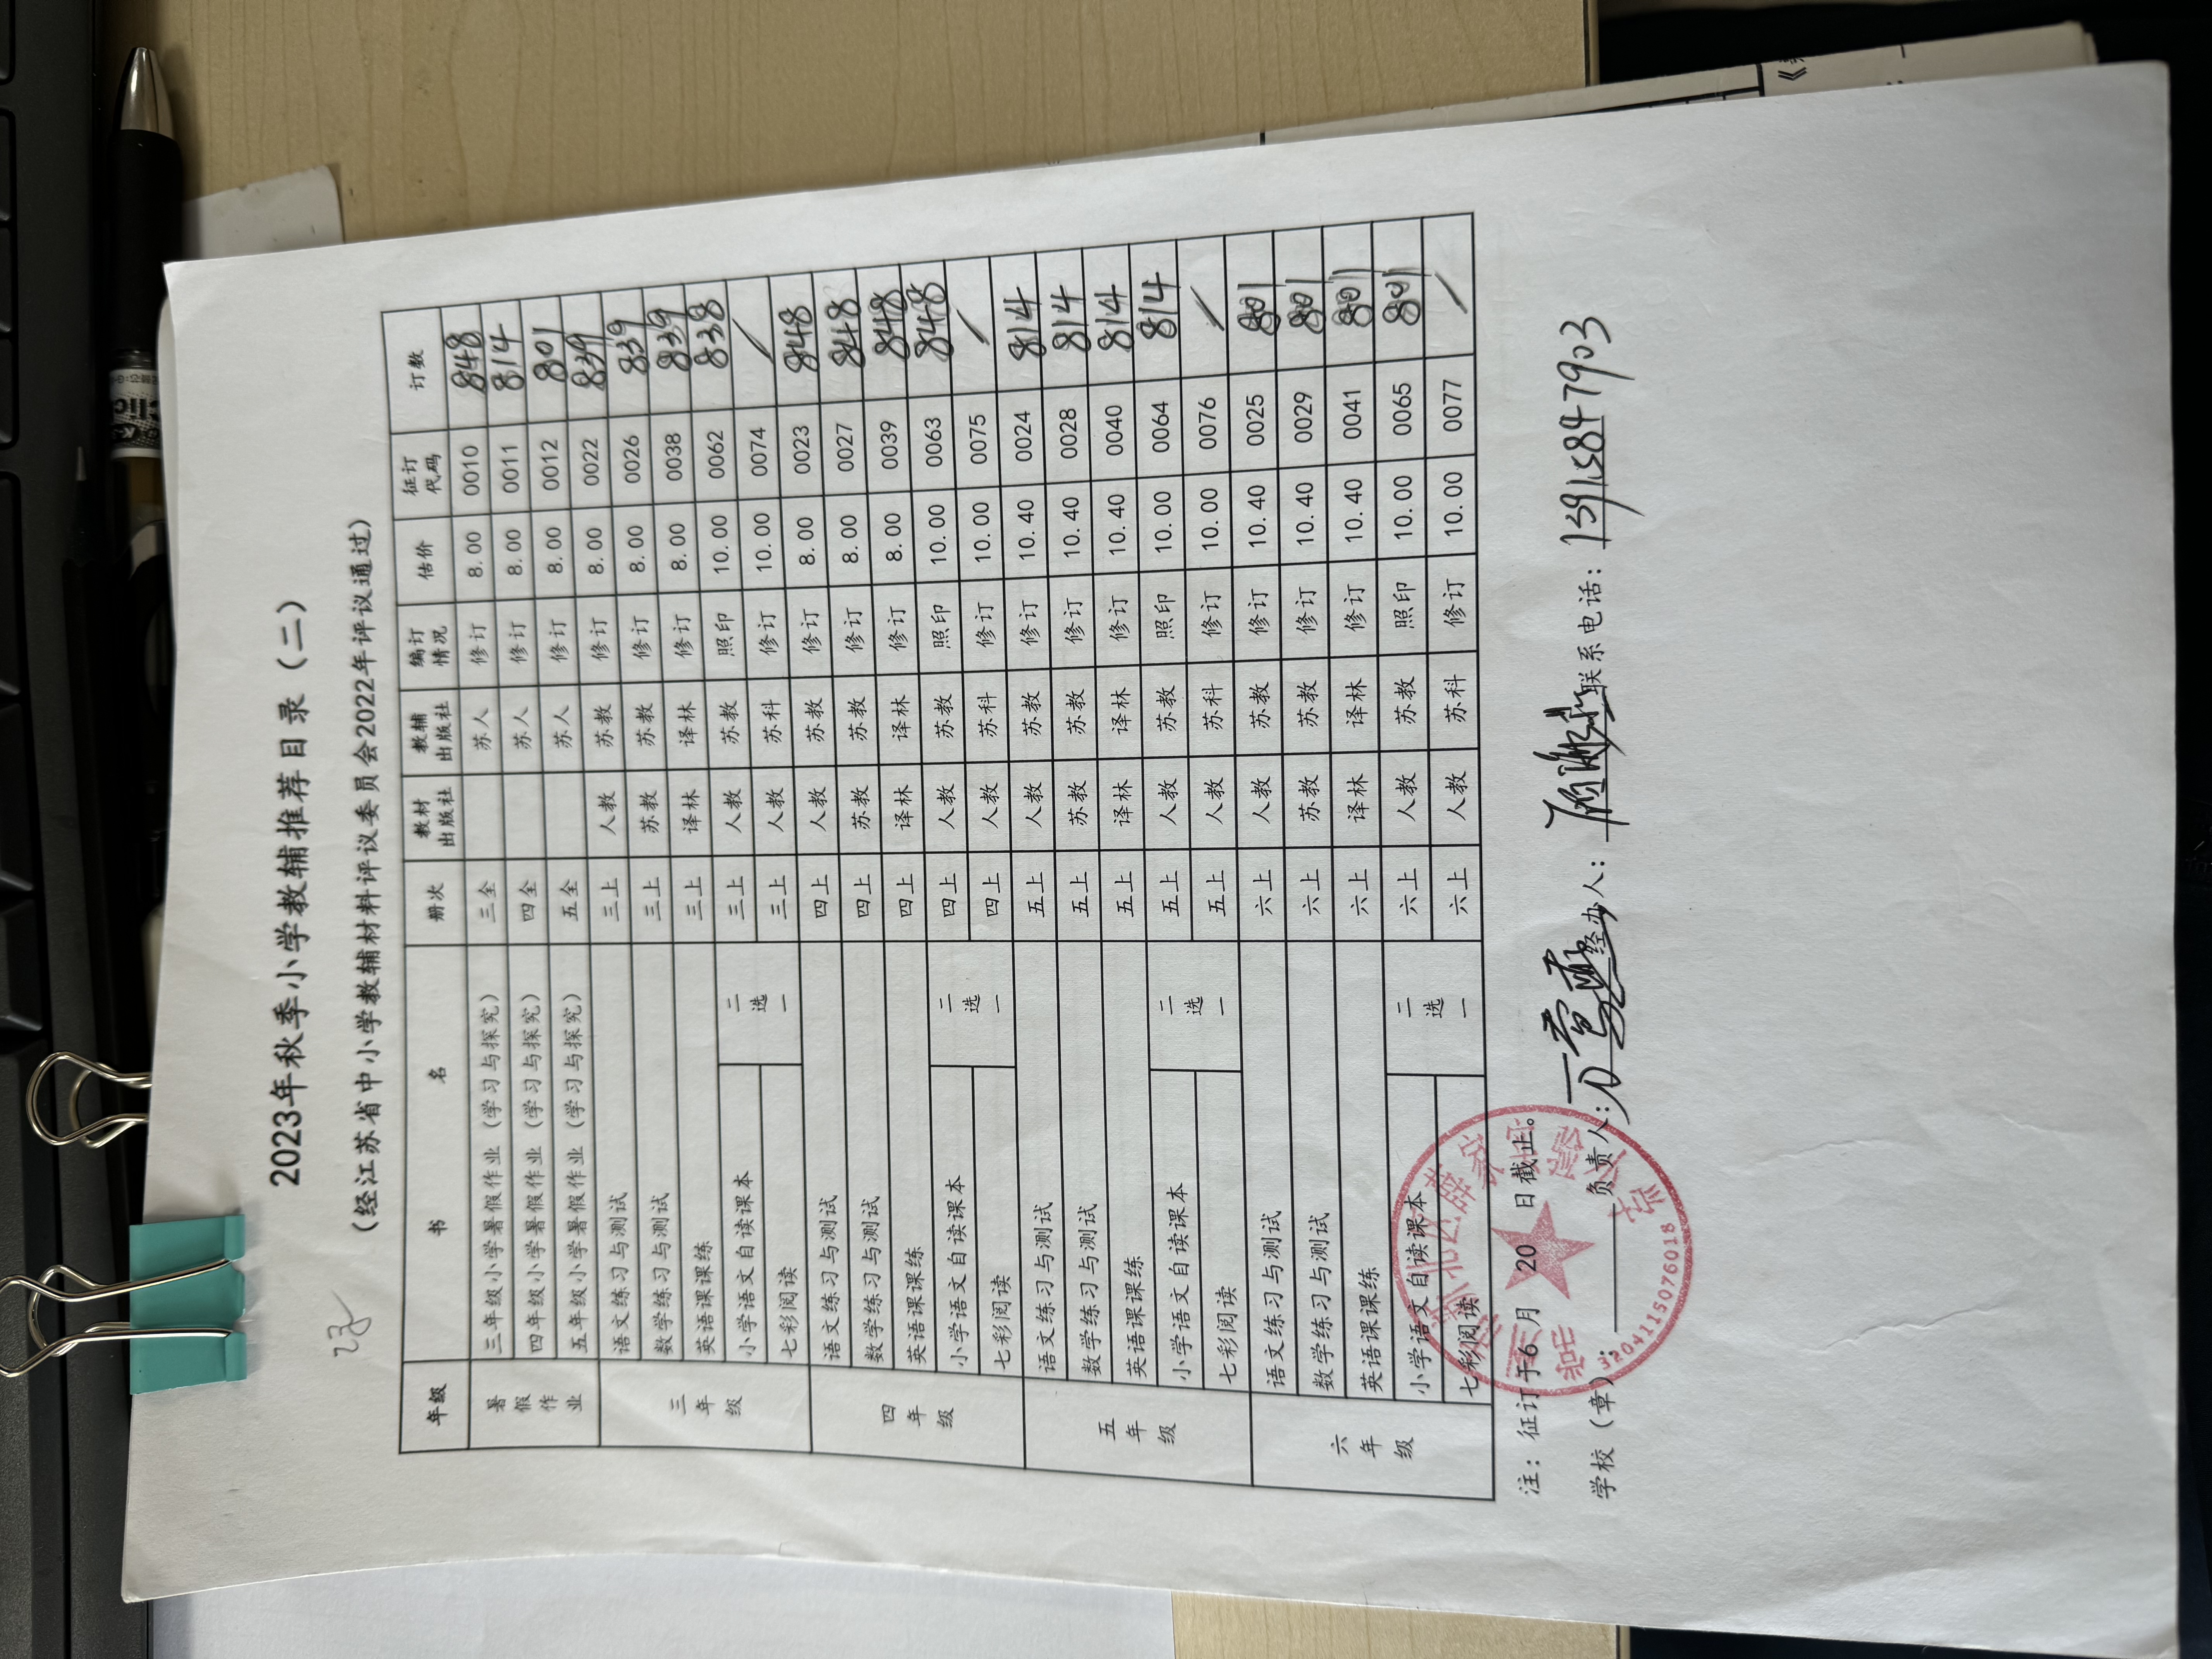 2023年秋季小学教辅推荐目录（二）
（经江苏省中小学教辅材料评议委员会2022年评议通过）
年级 书 名 册次 教材出版社 教辅出版社 编订情况 估价 征订代码 订数
暑假作业 三年级小学暑假作业（学习与探究） 三全 苏人 修订 8.00 0010 848
四年级小学暑假作业（学习与探究） 四全 苏人 修订 8.00 0011 814
五年级小学暑假作业（学习与探究） 五全 苏人 修订 8.00 0012 801
三年级 语文练习与测试 三上 人教 苏教 修订 8.00 0022 839
数学练习与测试 三上 苏教 苏教 修订 8.00 0026 839
英语课课练 三上 译林 译林 修订 8.00 0038 839
小学语文自读课本 二选一 三上 人教 苏教 照印 10.00 0062 838
七彩阅读 三上 人教 苏科 修订 10.00 0074 /
四年级 语文练习与测试 四上 人教 苏教 修订 8.00 0023 848
数学练习与测试 四上 苏教 苏教 修订 8.00 0027 848
英语课课练 四上 译林 译林 修订 8.00 0039 848
小学语文自读课本 二选一 四上 人教 苏教 照印 10.00 0063 848
七彩阅读 四上 人教 苏科 修订 10.00 0075 /
五年级 语文练习与测试 五上 人教 苏教 修订 10.40 0024 814
数学练习与测试 五上 苏教 苏教 修订 10.40 0028 814
英语课课练 五上 译林 译林 修订 10.40 0040 814
小学语文自读课本 二选一 五上 人教 苏教 照印 10.00 0064 814
七彩阅读 五上 人教 苏科 修订 10.00 0076 /
六年级 语文练习与测试 六上 人教 苏教 修订 10.40 0025 801
数学练习与测试 六上 苏教 苏教 修订 10.40 0029 801
英语课课练 六上 译林 译林 修订 10.40 0041 801
小学语文自读课本 二选一 六上 人教 苏教 照印 10.00 0065 801
七彩阅读 六上 人教 苏科 修订 10.00 0077 /
注：征订于6月 20 日截止。
学校（章）： 负责人： 经办人： 联系电话：13915847903
3204115076018
Clic